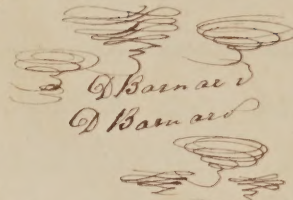 D Barnard
D Barnard